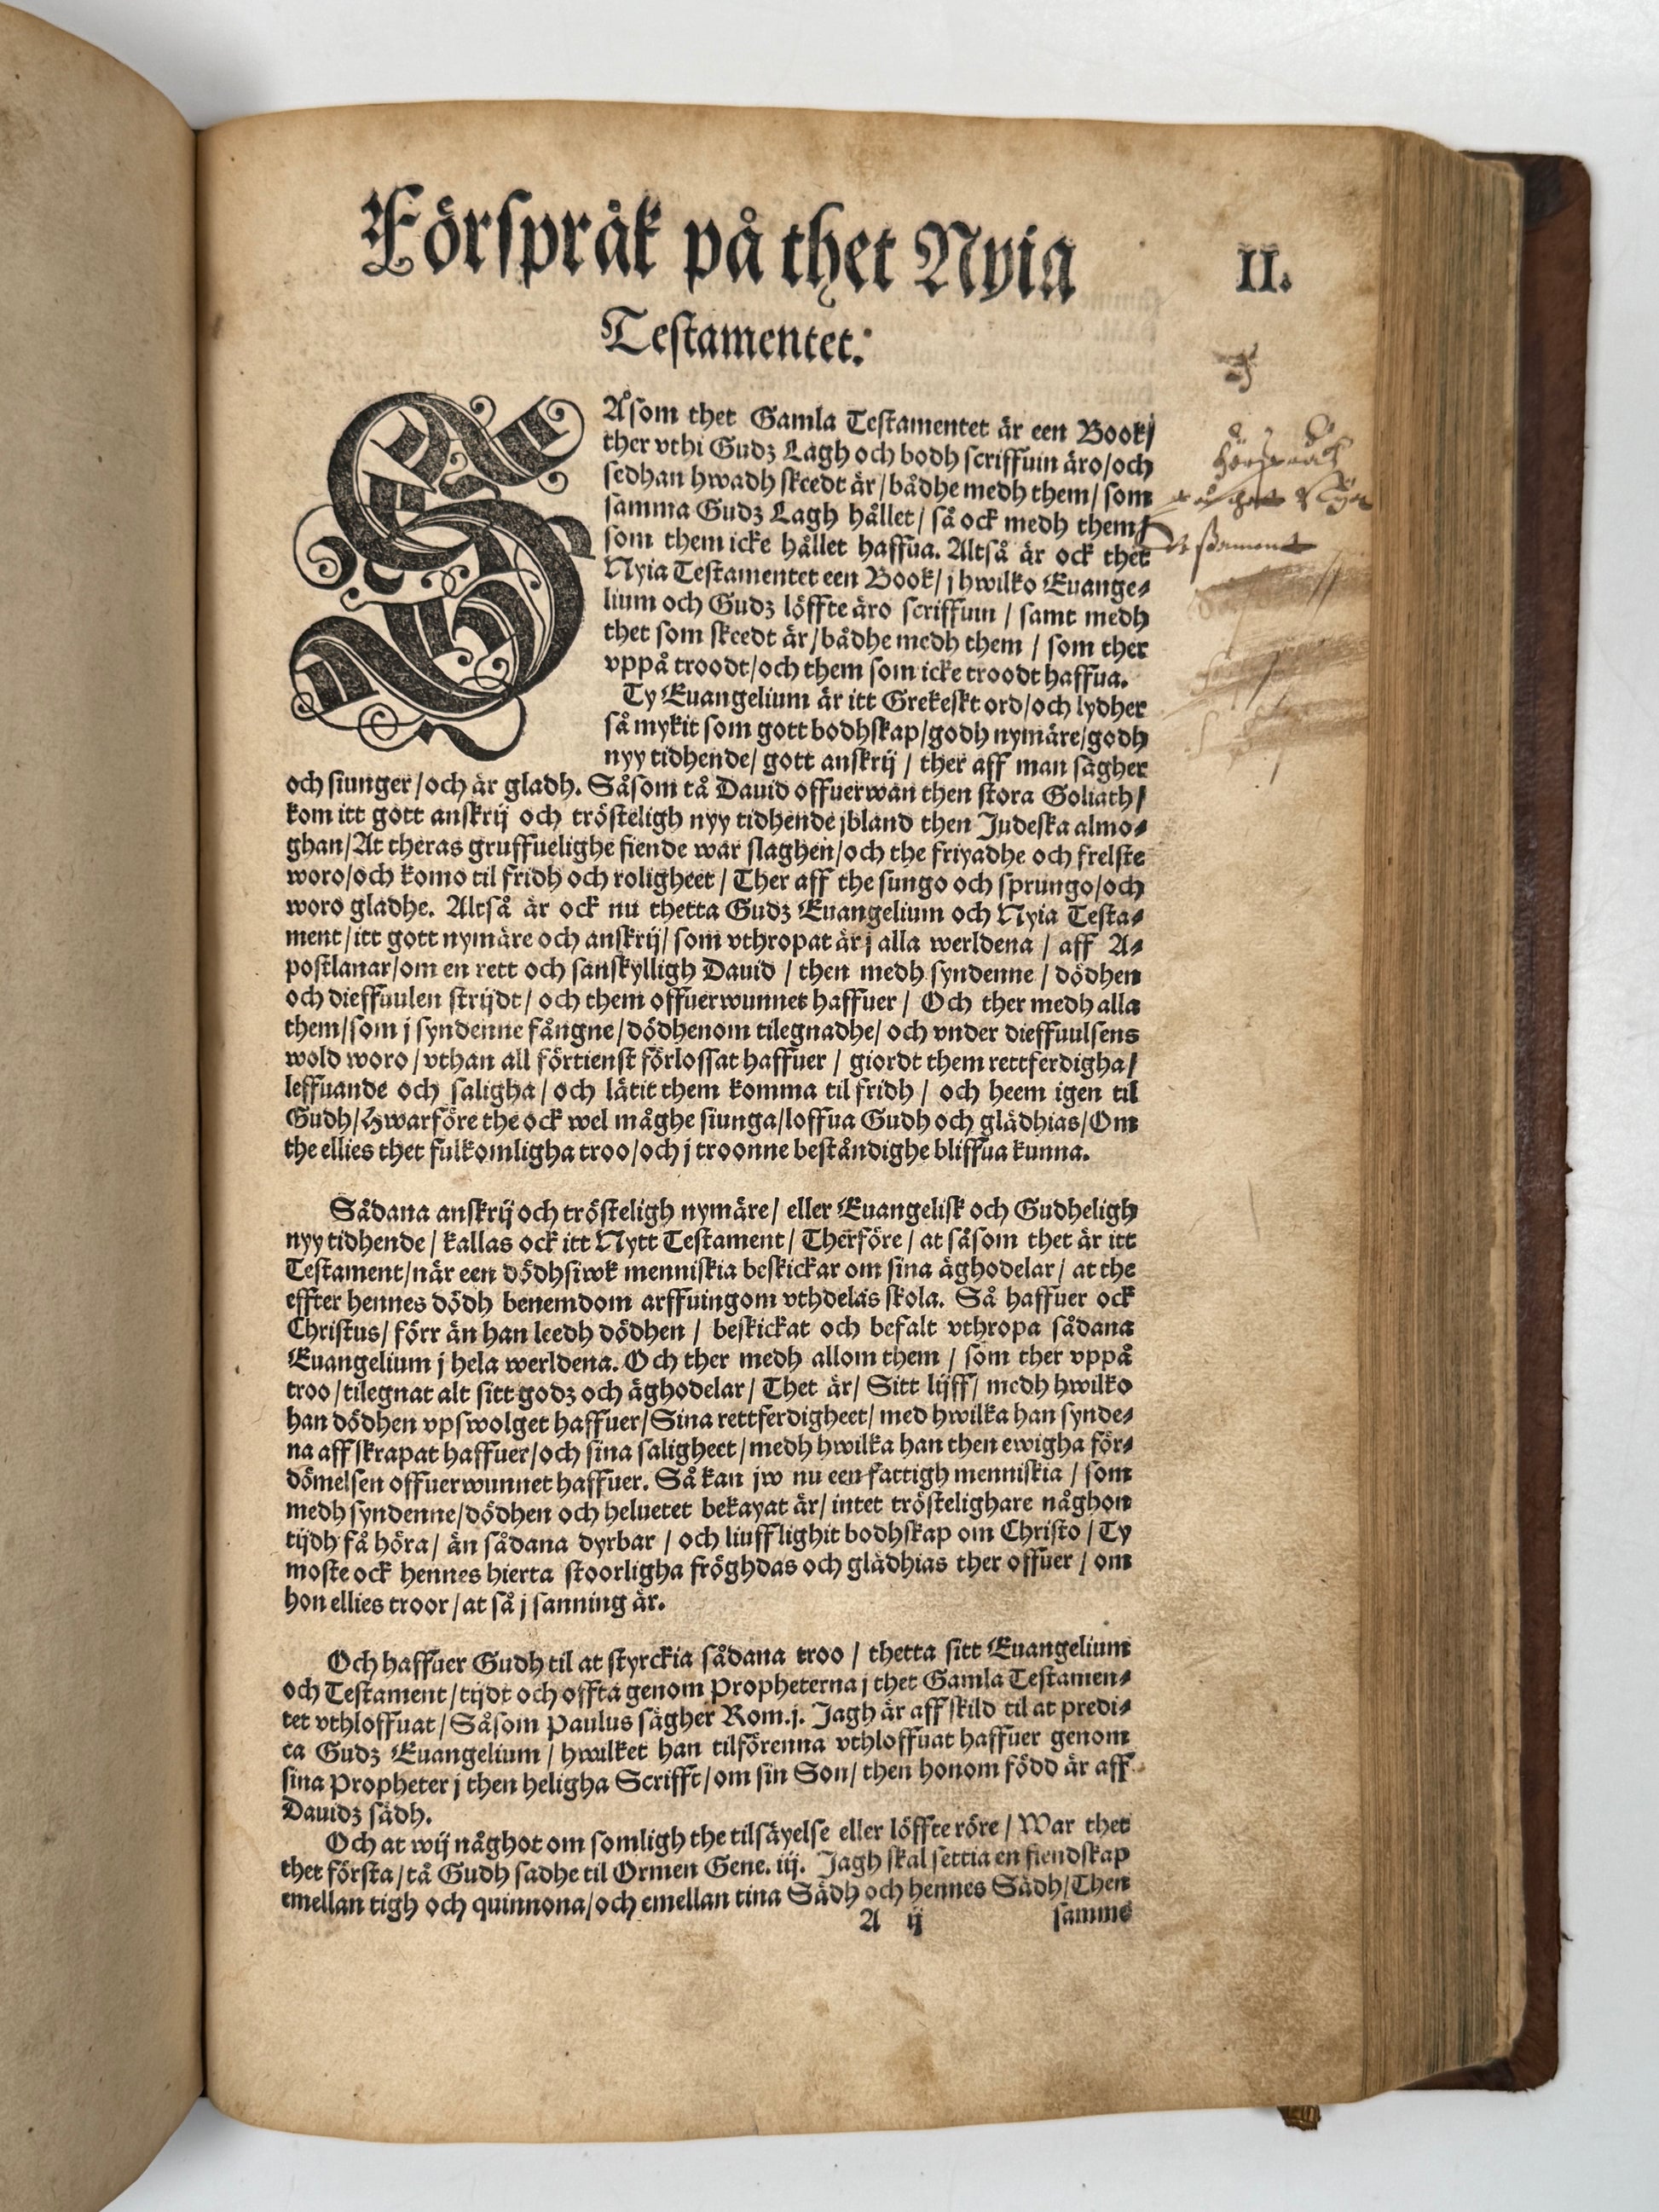 Förspråk på thet Nyia
II.
Testamentet.
SÅsom thet Gamla Testamentet är een Book/
ther vthi Gudz Lagh och bodh scriffuin äro/och
sedhan hwadh skeedt är/bådhe medh them/som
samma Gudz Lagh hållet/ så ock medh them/
som them icke hållet haffua. Altså är ock thet
Nyia Testamentet een Book/ j hwilko Euange⸗
lium och Gudz löffte äro scriffuin / samt medh
thet som skeedt är/bådhe medh them / som ther
vppå troodt/och them som icke troodt haffua.
Ty Euangelium är itt Grekeskt ord/och lydher
så mykit som gott bodhskap/godh nymäre/godh
nyy tidhende/ gott anskrij / ther aff man sägher
och siunger/och är gladh. Såsom tå Dauid offuerwan then stora Goliath/
kom itt gott anskrij och trösteligh nyy tidhende jbland then Judeska almo⸗
ghan/At theras gruffuelighe fiende war slaghen/och the friyadhe och frelste
woro/och komo til fridh och roligheet / Ther aff the sungo och sprungo/och
woro gladhe. Altså är ock nu thetta Gudz Euangelium och Nyia Testa⸗
ment/itt gott nymäre och anskrij/ som vthropat är j alla werldena / aff A⸗
postlanar/om en rett och sanskylligh Dauid / then medh syndenne / dödhen
och dieffuulen strijdt/ och them offuerwunnet haffuer / Och ther medh alla
them/som j syndenne fångne/dödhenom tilegnadhe/ och vnder dieffuulsens
wold woro/vthan all förtienst förlossat haffuer / giordt them rettferdigha/
leffuande och saligha/ och lätit them komma til fridh / och heem igen til
Gudh/Hwarföre the ock wel måghe siunga/loffua Gudh och glädhias/Om
the ellies thet fulkomligha troo/och j troonne beståndighe bliffua kunna.
Sådana anskrij och tröstelig​h nymäre/ eller Euangelisk och Gudheligh
nyy tidhende/ kallas ock itt Nytt Testament/ Therföre/ at såsom thet är itt
Testament/när een dödhsiwk menniskia beskickar om sina äghodelar/ at the
effter hennes dödh benemdom arffuingom vthdelas skola. Så haffuer ock
Christus/ förr än han leedh dödhen / beskickat och befalt vthropa sådana
Euangelium j hela werldena. Och ther medh allom them / som ther vppå
troo/tilegnat alt sitt godz och äghodelar/ Thet är/ Sitt lijff/ medh hwilko
han dödhen vpswolget haffuer/Sina rettferdigheet/ med hwilka han synde⸗
na aff skrapat haffuer/och sina saligheet/medh hwilka han then ewigha för⸗
dömelsen offuerwunnet haffuer. Så kan jw nu een fattigh menniskia / som
medh syndenne/dödhen och heluetet bekayat är/ intet tröstelighare någhon
tijdh få höra/ än sådana dyrbar / och liufflighit bodhskap om Christo/Ty
moste ock hennes hierta stoorligha fröghdas och glädhias ther offuer / om
hon ellies troor/at så j sanning är.
Och haffuer Gudh til at styrckia sådana troo / thetta sitt Euangelium
och Testament/tijdt och offta genom Propheterna j thet Gamla Testamen⸗
tet vthloffuat/ Såsom Paulus sägher Rom.j. Jagh är aff skild til at predi⸗
ca Gudz Euangelium / hwilket han tilförenna vthloffuat haffuer genom
sina Propheter j then heligha Scrifft/om sin Son/ then honom född är aff
Dauidz sädh.
Och at wij någhot om somligh the tilsäyelse eller löffte röre/ War thet
thet första/tå Gudh sadhe til Ormen Gene. iij. Jagh skal settia en fiendskap
emellan tigh och quinnona/och emellan tina Sädh och hennes Sädh/Then
A ij samme